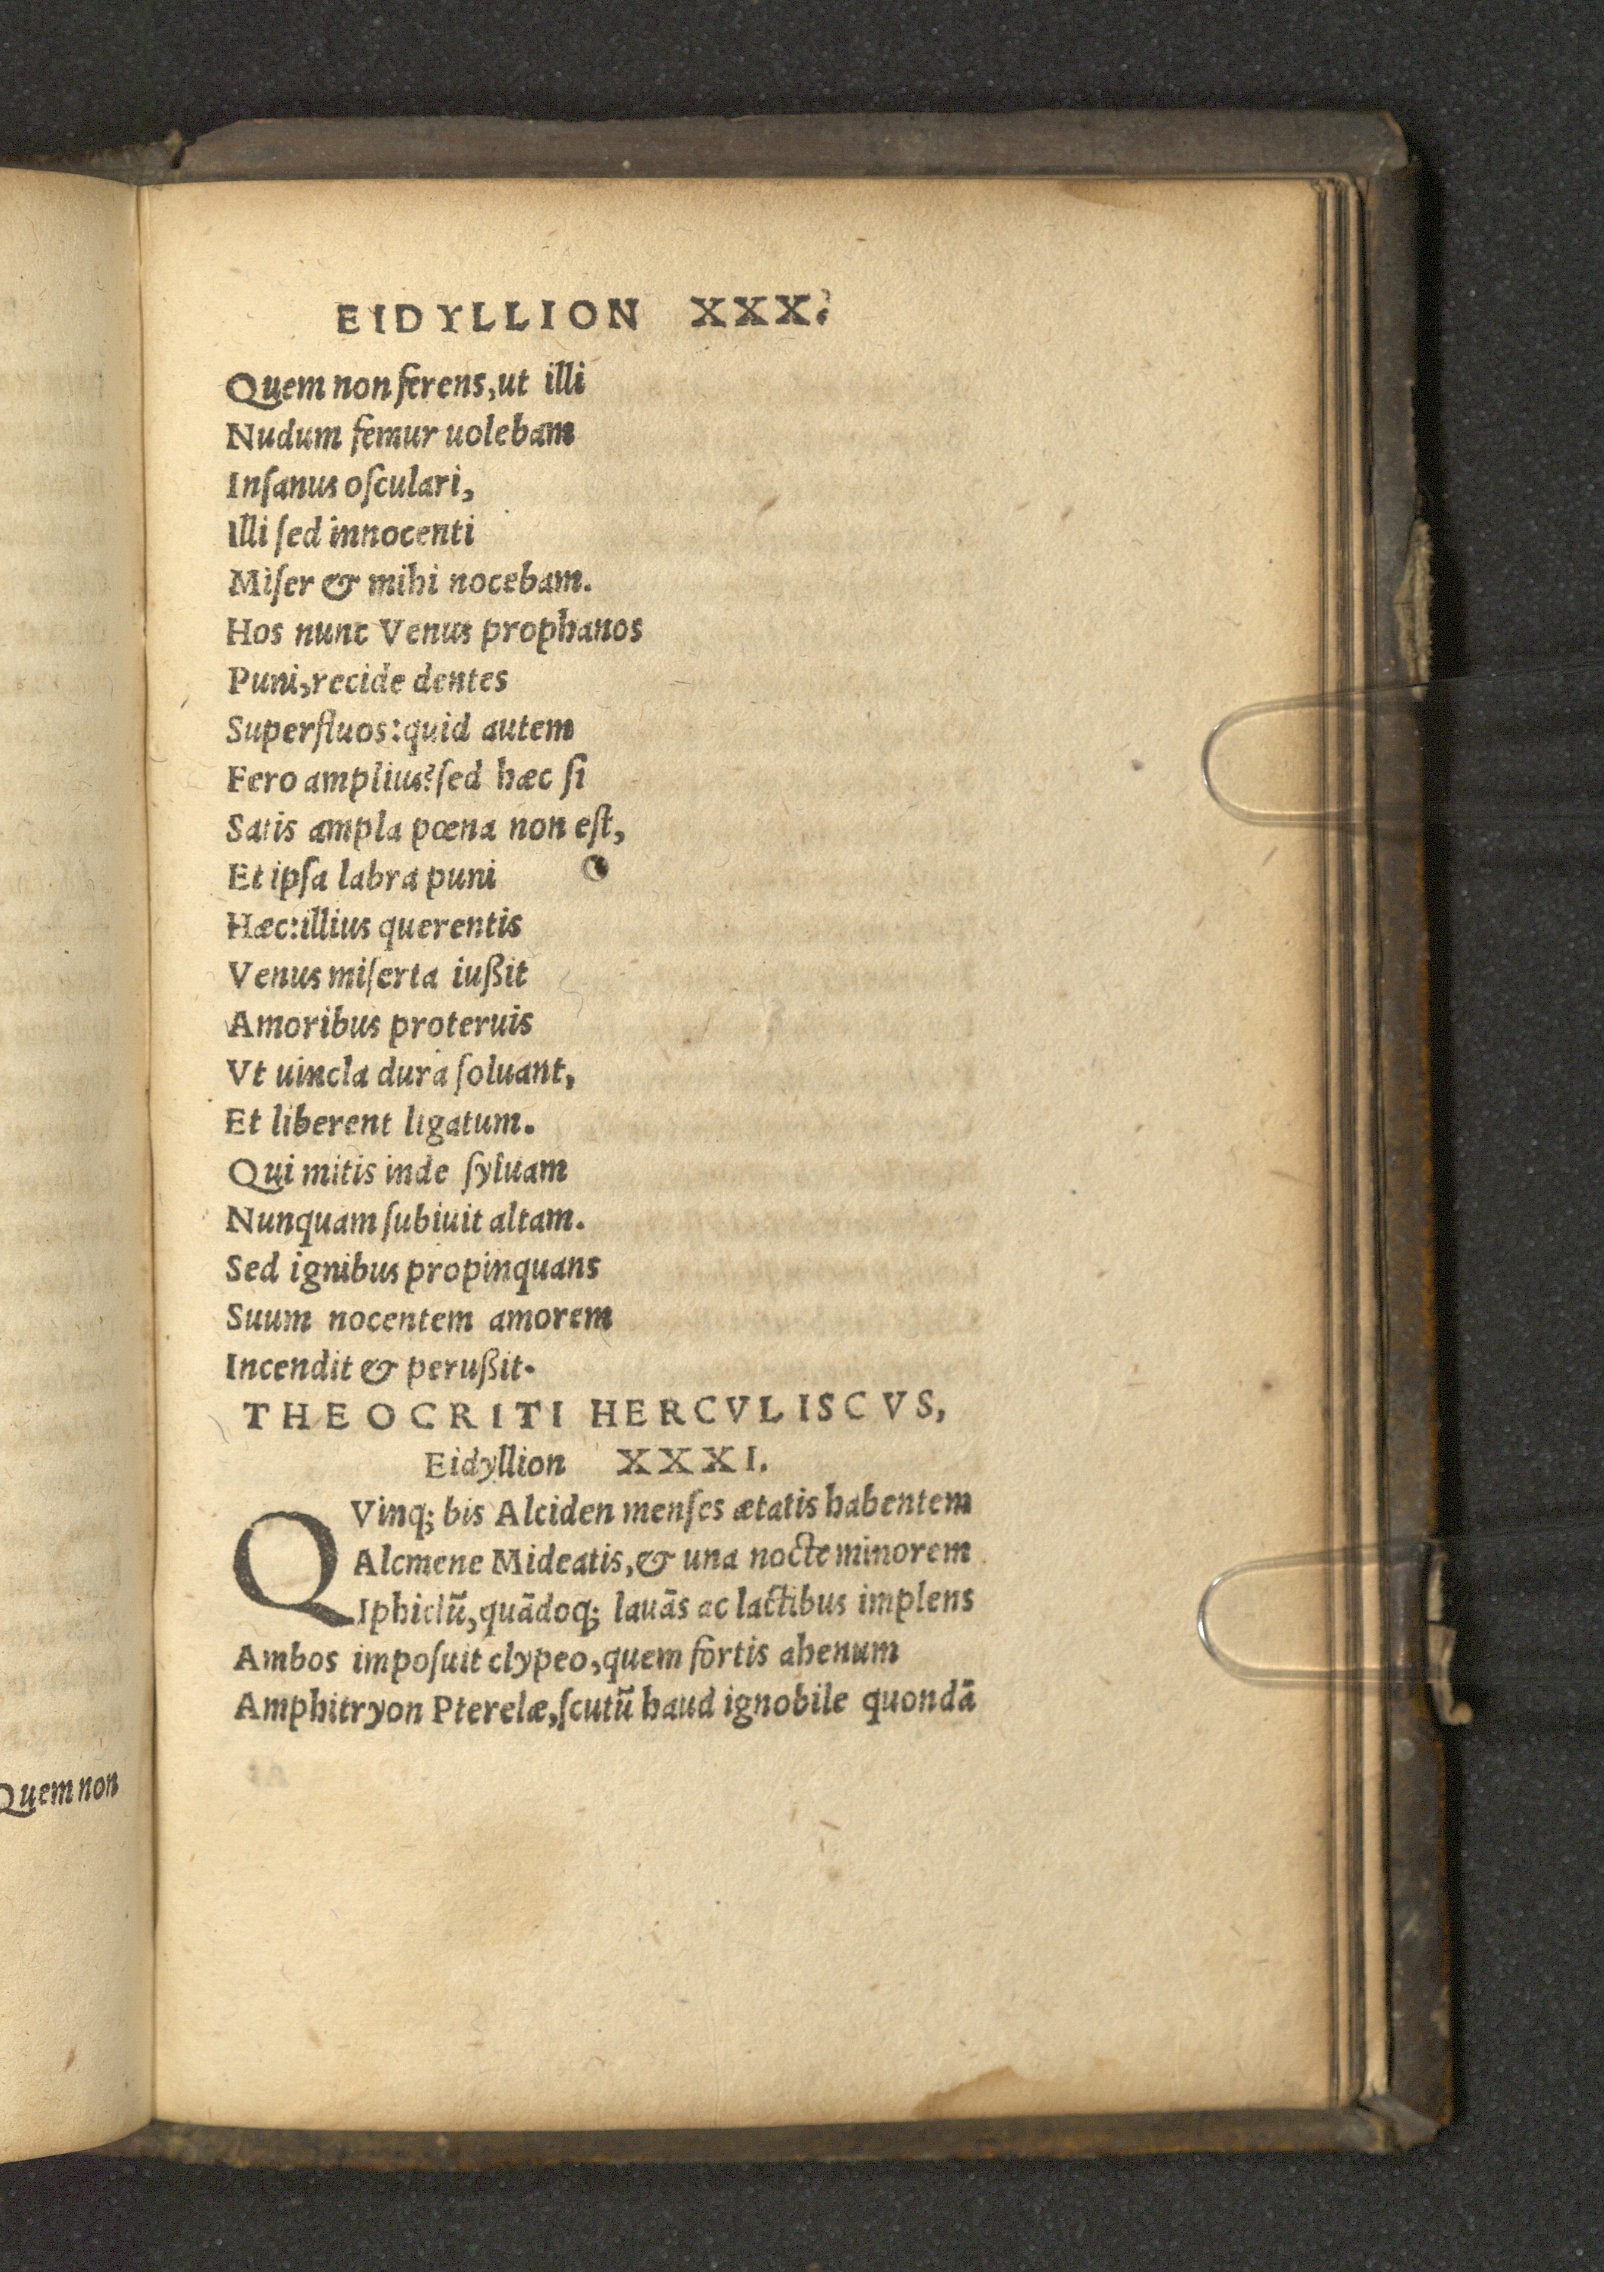 Quem non
EIDYLLION XXX.
Quem non ferens, ut illi
Nudum femur uolebam
Inſanus oſculari,
Illi ſed innocenti
Miſer & mihi nocebam.
Hos nunc Venus prophanos
Puni, recide dentes
Superfluos: quid autem
Fero amplius? ſed hæc ſi
Satis ampla pœna non eſt,
Et ipſa labra puni
Hæc: illius querentis
Venus miſerta iußit
Amoribus proteruis
Vt uincla dura ſoluant,
Et liberent ligatum.
Qui mitis inde ſyluam
Nunquam ſubiuit altam.
Sed ignibus propinquans
Suum nocentem amorem
Incendit & perußit.
THEOCRITI HERCVLISCVS,
Eidyllion XXXI.
QVinq; bis Alciden menſes ætatis habentem
Alcmene Mideatis, & una nocte minorem
Iphiclū, quādoq; lauās ac lactibus implens
Ambos impoſuit clypeo, quem fortis ahenum
Amphitryon Pterelæ, ſcutū haud ignobile quondā